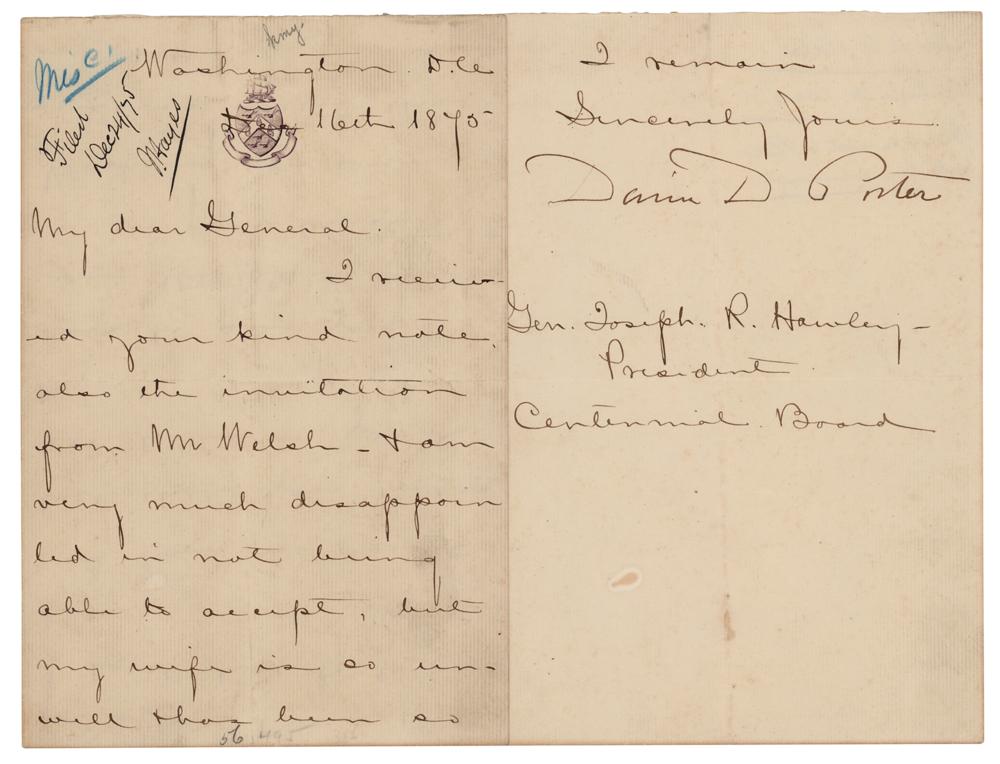 Misc.
Army.
Filed
Dec 24/75
J Hayes
Washington. D.Ce
16th 1875
My dear General.
I receiv-
ed your kind note,
also the invitation
from Mr Welsh - I am
very much disappoin
ted in not being
able to accept, but
my wife is so un-
well & has been so
56,495
I remain
Sincerely Yours
David D Porter
Gen. Joseph. R. Hawley -
President.
Centennial. Board